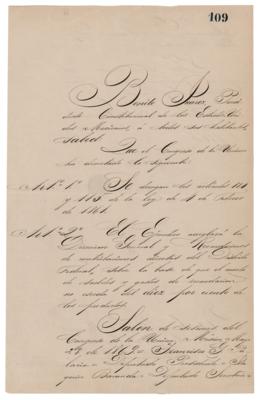 109
Benito Juarez, Presi
dente Constitucional de los Estados Uni
dos Mexicanos, á todos sus habitantes,
sabed:
Que el Congreso de la Union
ha decretado lo siguiente:
Art.º 1º Se derogan los artículos
y 113 de la ley de 4 de Febrero
de 1861.
Art.º 2º El Ejecutivo arreglará la
Direccion General y Recaudaciones
de contribuciones directas del Distrito
Federal, sobre la base de que el monto
de sueldos y gastos de recaudacion
no esceda del diez por ciento de
los productos.
Salon de sesiones del
Congreso de la Union, Mexico, Mayo
27 de
Diputado Presidente
Baranda Diputado Secretario